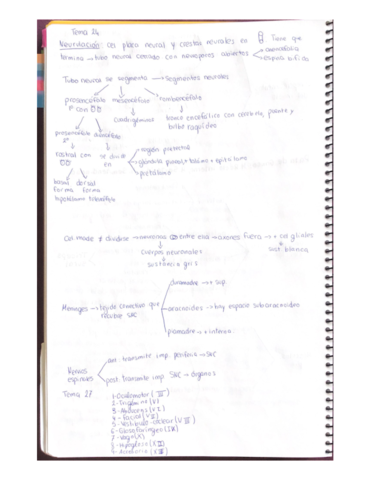 Tema 26
Neurulación: placa neural y crestas neurales en Tiene que
termina → tubo neural cerrado con neuroporos abiertos anencefalia
espina bífida
Tubo neural se segmenta → segmentos neurales
prosencéfalo mesencéfalo rombencéfalo
con
cuadrigéminos tronco encefálico con cerebelo, puente y
bulbo raquídeo
prosencéfalo
región pretectal
rostral con se divide en glándula pineal + tálamo + epitálamo
pretálamo
basal dorsal
forma forma
hipotálamo telencéfalo
entre esa → axones fuera → + gliales
cuerpos neuronales sust. blanca
sustancia gris
duramadre → + sup
Meninges → tejido conectivo que recubre SNC aracnoides → hay espacio subaracnoideo
piamadre → + interna
Raíces espinales ant. transmite imp. periferia → SNC
post. transmite imp. SNC → órganos
Tema 27 1-Oculomotor (III)
2-Trigémino (V)
3-Abducens (VI)
4-Facial (VII)
5-Vestíbulo-coclear (VIII)
6-Glosofaríngeo (IX)
7-Vago (X)
8-Hipogloso (XII)
9-Accesorio